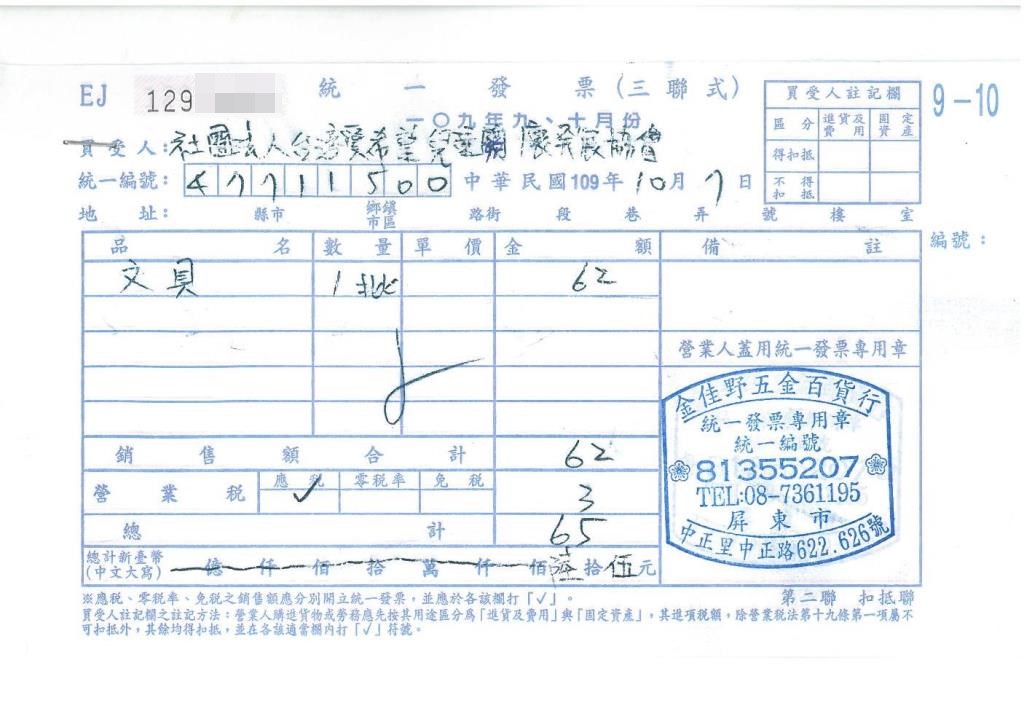 EJ 129 統一發票(三聯式)
一〇九年九、十月份
9-10
買受人註記欄
區分 進貨及費用 固定資產
得扣抵
不得扣抵
買受人:社團法人台灣愛希望兒童關懷發展協會
統一編號: 47711500 中華民國109年10月7日
地址: 縣市 鄉鎮市區 路街 段 巷 弄 號 樓 室
品名 數量 單價 金額 備註 編號:
文具 1批 62
營業人蓋用統一發票專用章
銷售額合計 62
營業稅 應稅 ✓ 零稅率 免稅 3
總計 65
總計新臺幣(中文大寫) 億 仟 佰 拾 萬 仟 佰 陸 拾 伍 元
金佳野五金百貨行
統一發票專用章
統一編號
81355207
TEL:08-7361195
屏東市
中正里中正路622.626號
※應稅、零稅率、免稅之銷售額應分別開立統一發票,並應於各該欄打「✓」。
第二聯 扣抵聯
買受人註記欄之註記方法:營業人購進貨物或勞務應先按其用途區分為「進貨及費用」與「固定資產」,其進項稅額,除營業稅法第十九條第一項屬不
可扣抵外,其餘均得扣抵,並在各該適當欄內打「✓」符號。